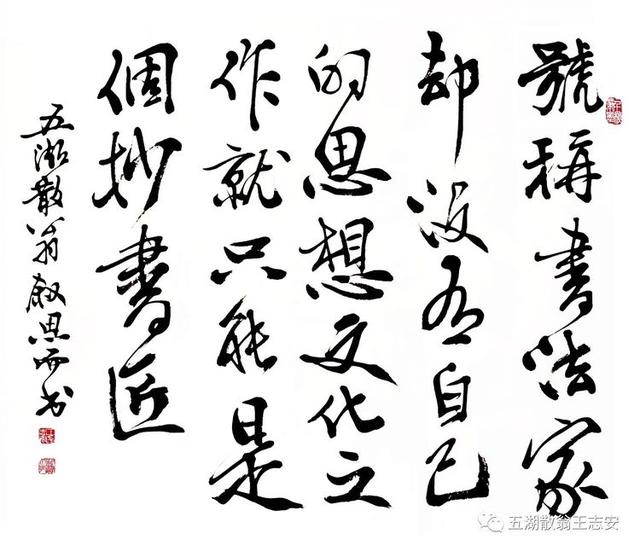 號稱書法家
却没有自己
的思想文化之
作就只能是
個抄書匠
五湖散翁叙思而书
五湖散翁王志安